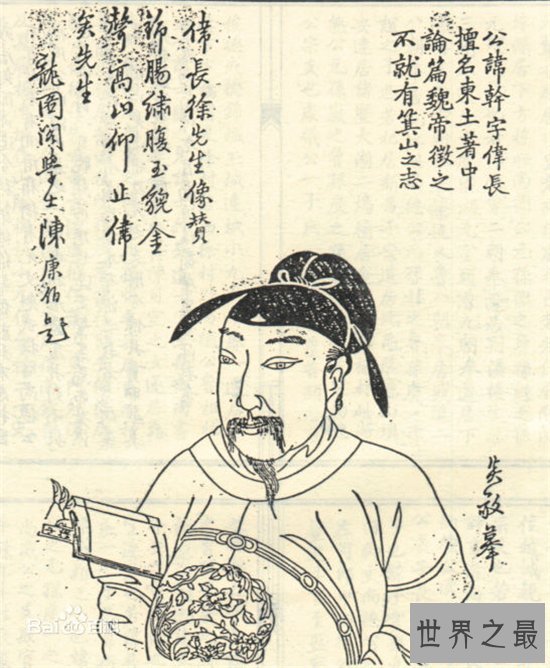 公諱幹字偉長
擅名東土著中
論篇魏帝徵之
不就有箕山之志
偉長徐先生像贊
錦腸繡腹玉貌金
聲高山仰止偉
矣先生
龍圖閣學士陳康伯題
敬摹
Bai 百科
世界之最